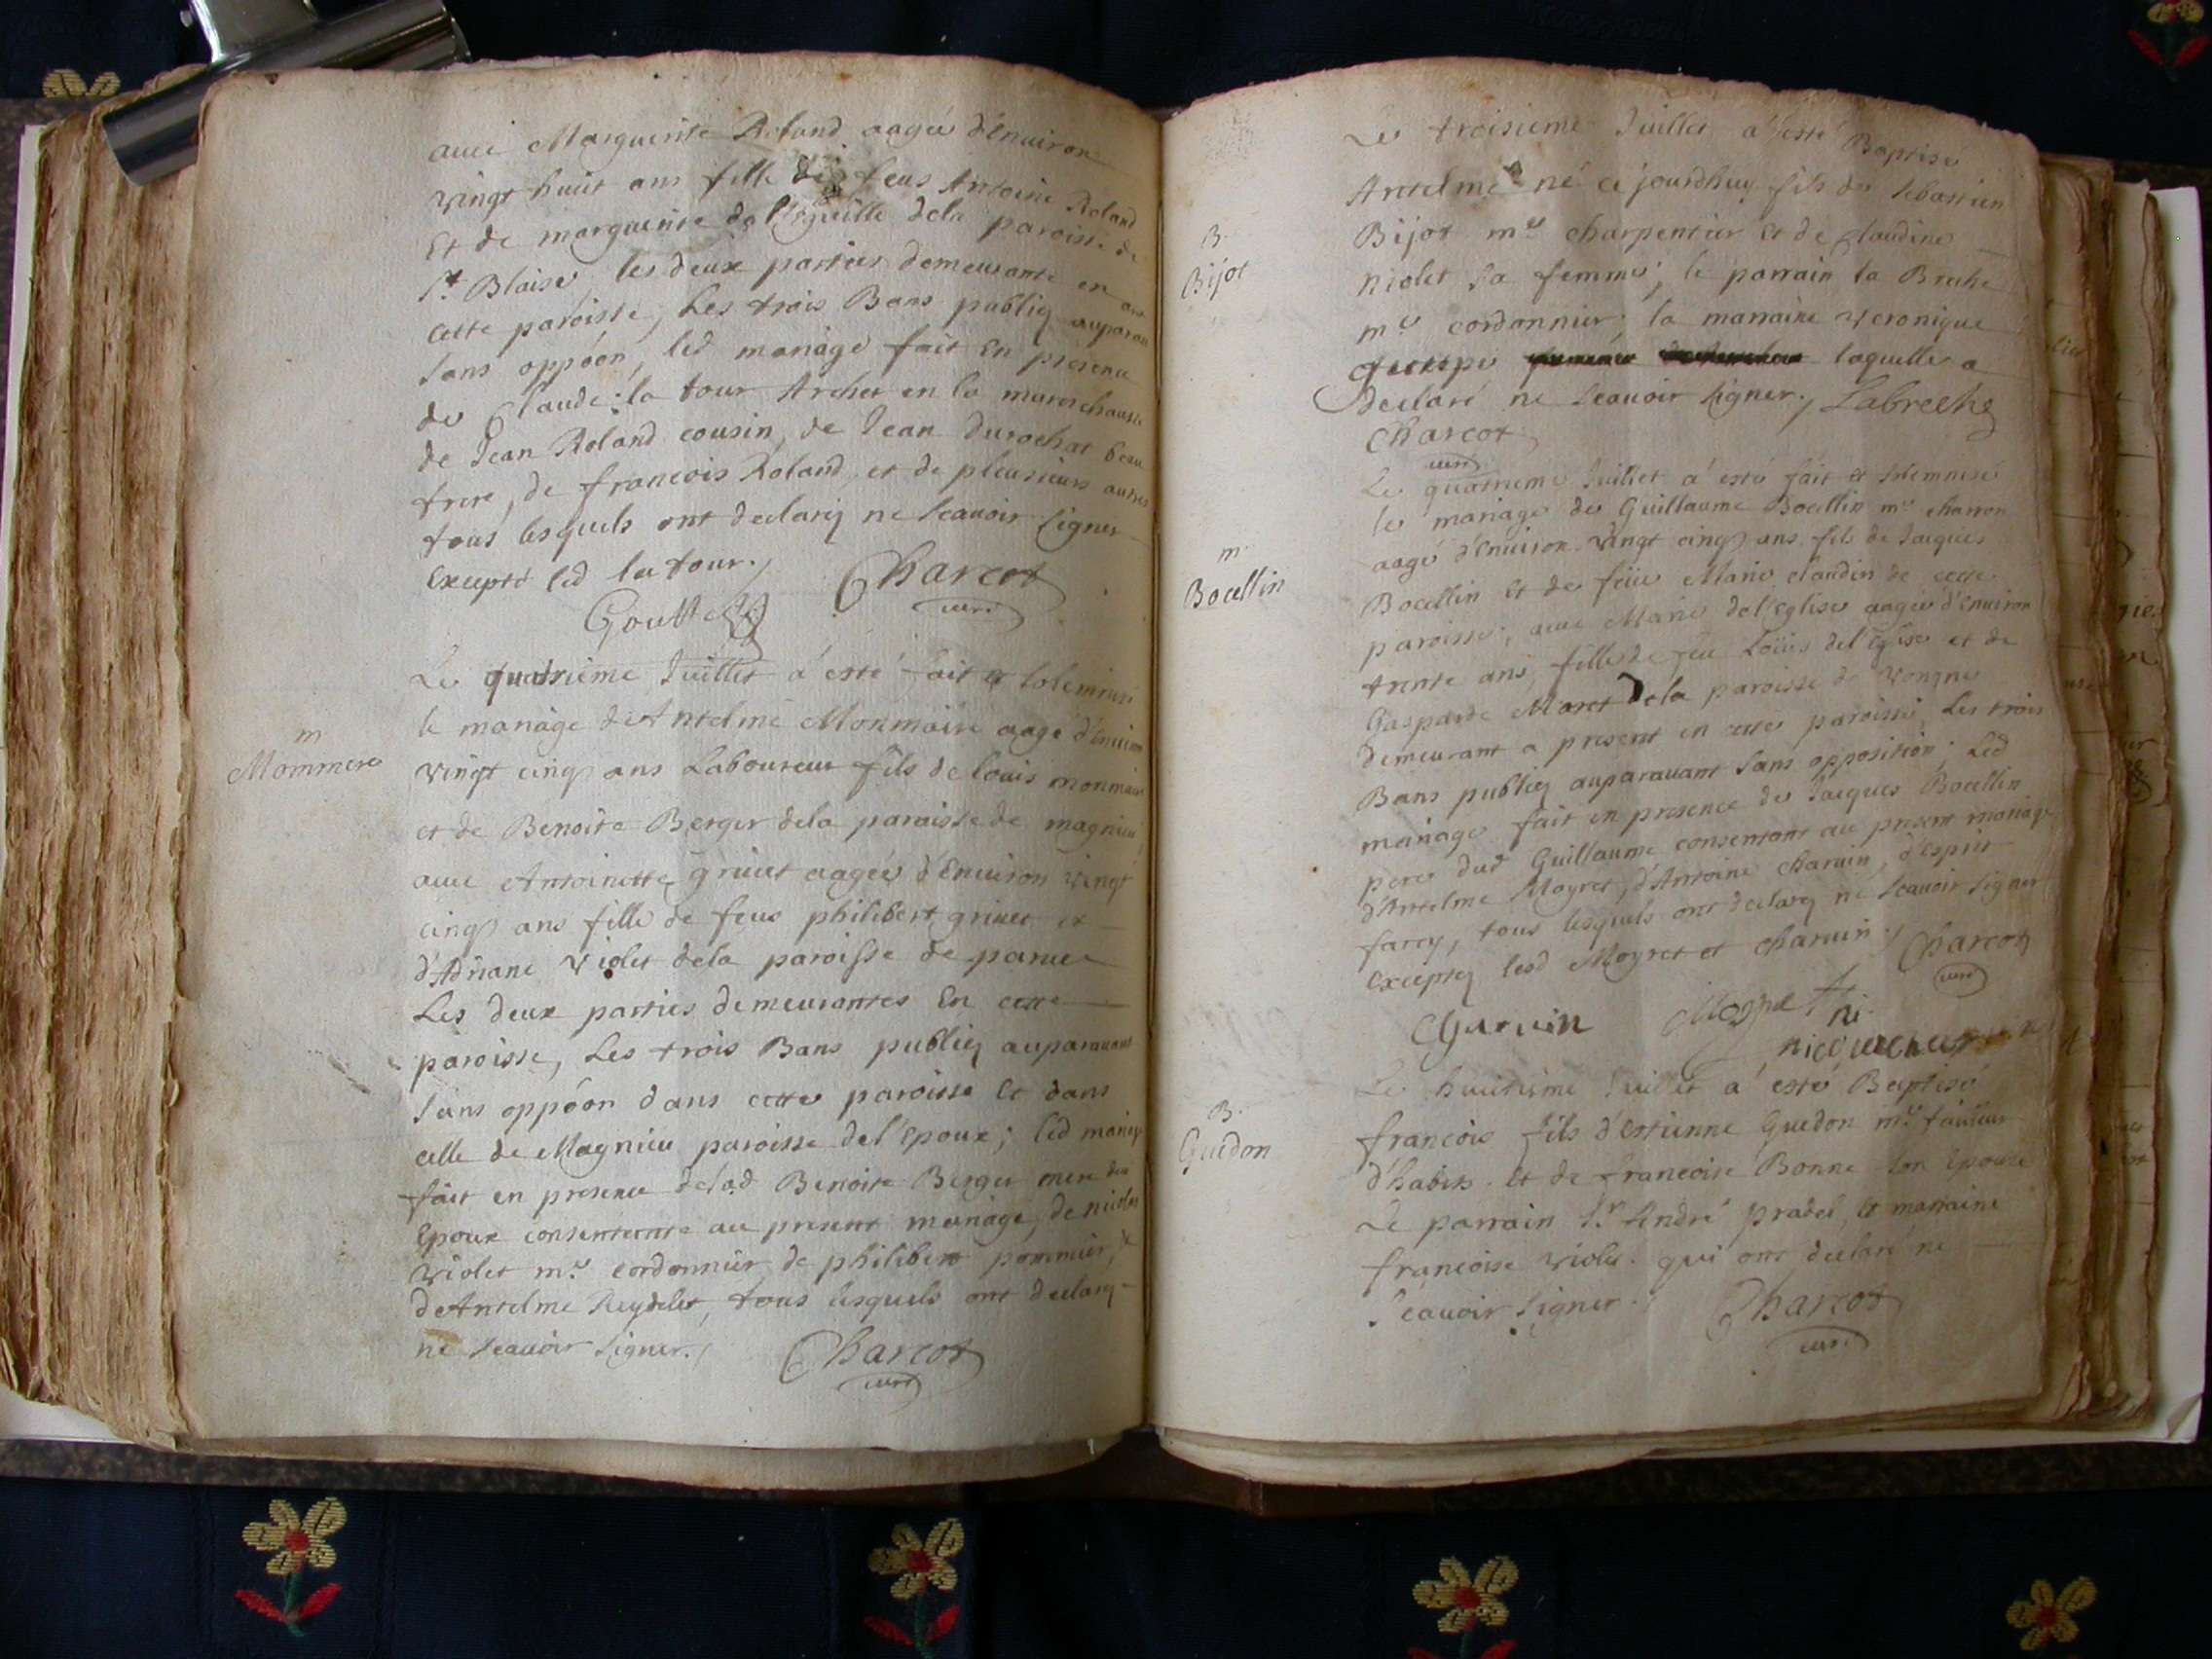 avec Marguerite Roland aagée d'Enuiron
vingt huit ans fille de feus Antoine Roland
Et de marguerite de l'Eguille dela paroisse de
St Blaise, les deux parties demeurante en
cette paroisse, Les trois Bans publiez auparau
sans oppoon, led mariage fait En presence
de Claude la tour Archer en la marechaussé
de Jean Roland cousin, de Jean Durochat beau
frere, de francois Roland et de pleusieurs autres
tous lesquels ont declarez ne scauoir signer
Excepté led la tour.
Charcot
curé
m
Mommere
Le quatrieme Juillet a esté fait et solemnisé
le mariage de Antelme Monmaire aagé d'Enuiron
vingt cinq ans Laboureur fils de louis monmaire
et de Benoite Berger dela paroisse de magnieu
auec Antoinette griuet aagée d'Enuiron vingt
cinq ans fille de feus philibert griuet et
d'Adriane violet dela paroisse de parues
Les deux parties demeurantes En cette
paroisse, Les trois Bans publiez auparauant
sans oppoon dans cette paroisse Et dans
celle de Magnieu paroisse del'Epoux; led mariage
fait en presence delad Benoite Berger mere
Epoux consentente au present mariage, de nicolas
violet me cordonnier de philibert pommier, &
de Antelme Reydelet, tous lesquels ont declarez
ne scauoir signer.
Charcot
curé
B.
Bijot
Le troisieme Juillet a esté Baptisé
Antelme né ce jourdhuy fils de sebastien
Bijot me charpentier Et de Claudine
Niolet sa femme; le parrain la Breche
me cordonnier; la marraine veronique
laquelle a
declaré ne scauoir signer. Labreche
Charcot
curé
m
Bocellin
Le quatrieme Juillet a esté fait et solemnisé
le mariage de Guillaume Bocellin me charron
aagé d'Enuiron vingt cinq ans fils de Jacques
Bocellin Et de feüe Marie claudin de cette
paroisse; auec Marie del'Eglise aagée d'Enuiron
trente ans, fille de feu Loüis del'Eglise et de
Gasparde Maret dela paroisse de Vongne
demeurant a present en cette paroisse, Les trois
Bans publiez auparauant sans opposition; Led
mariage fait en presence de Jacques Bocellin
pere dud Guillaume consentant au present mariage
d'Antelme Moyret, d'Antoine charuin, d'Esprit
farcy, tous lesquels ont declarez ne scauoir signer
Exceptez lesd Moyret et charuin.
Charcot
curé
Charuin
B.
Guedon
Le huitieme Juillet a esté Baptisé
francois fils d'Estienne Guedon me tailleur
d'habits. Et de francoise Bonne son Epouse
Le parrain Sr André pradel, Et marraine
françoise violet. qui ont declaré ne
Scauoir signer.
Charcot
curé